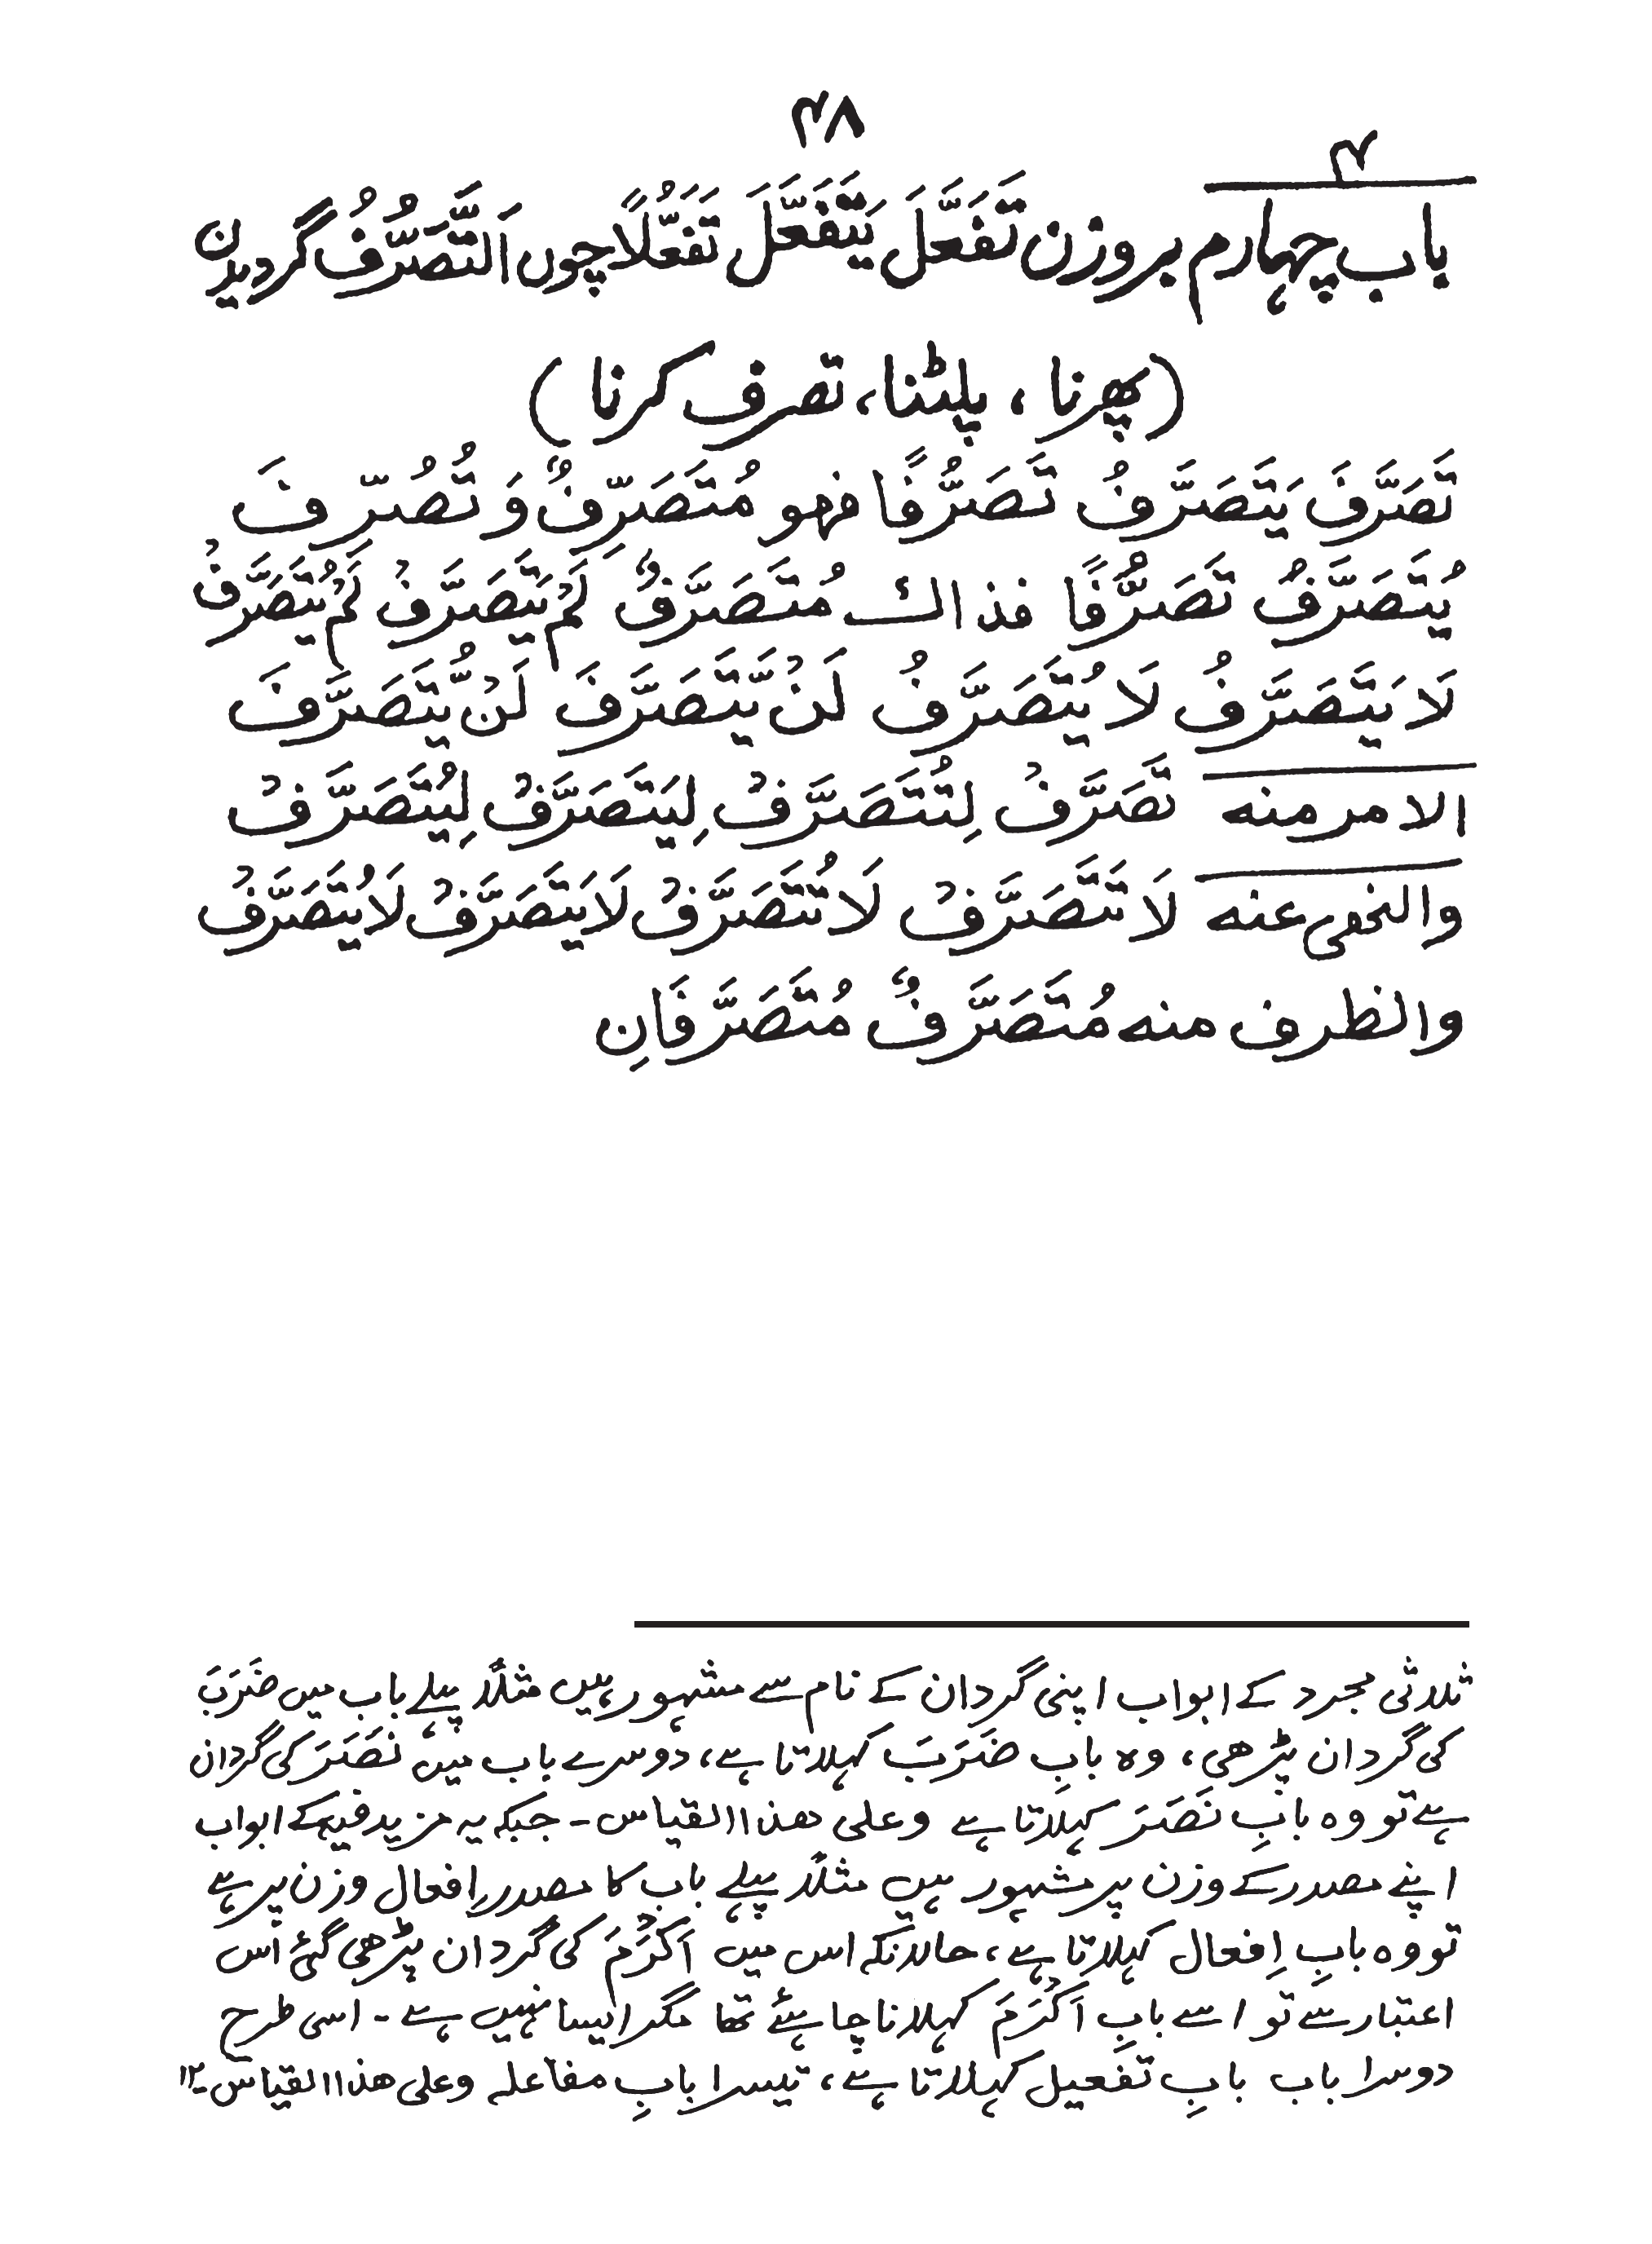 ۴۸
۴
باب چہارم بروزن تَفَعَّلَ یَتَفَعَّلُ تَفَعُّلًا چوں اَلتَّصَرُّفُ گردیدن
(پھرنا ، پلٹنا، تصرف کرنا )
تَصَرَّفَ یَتَصَرَّفُ تَصَرُّفًا فہو مُتَصَرِّفٌ وَ تُصُرِّفَ
یُتَصَرَّفُ تَصَرُّفًا فذاك مُتَصَرَّفٌ لَمْ یَتَصَرَّفْ لَمْ یُتَصَرَّفْ
لَا یَتَصَرَّفُ لَا یُتَصَرَّفُ لَنْ یَّتَصَرَّفَ لَنْ یُّتَصَرَّفَ
الامر منه تَصَرَّفْ لِتُتَصَرَّفْ لِیَتَصَرَّفْ لِیُتَصَرَّفْ
والنھی عنه لَا تَتَصَرَّفْ لَا تُتَصَرَّفْ لَا یَتَصَرَّفْ لَا یُتَصَرَّفْ
والظرف منه مُتَصَرَّفٌ مُتَصَرَّفَانِ
ثلاثی مجرد کے ابواب اپنی گردان کے نام سے مشہور ہیں مثلاً پہلے باب میں ضَرَبَ
کی گردان پڑھی، وہ بابِ ضَرَبَ کہلاتا ہے، دوسرے باب میں نَصَرَ کی گردان
ہے تو وہ بابِ نَصَرَ کہلاتا ہے وعلی ھذا القیاس - جبکہ یہ مزید فیہ کے ابواب
اپنے مصدر کے وزن پر مشہور ہیں مثلاً پہلے باب کا مصدر اِفعال وزن پر ہے
تو وہ بابِ اِفعال کہلاتا ہے، حالانکہ اس میں اَکْرَمَ کی گردان پڑھی گئی اُس
اعتبار سے تو اسے بابِ اَکْرَمَ کہلانا چاہئے تھا مگر ایسا نہیں ہے - اسی طرح
دوسرا باب بابِ تفعیل کہلاتا ہے، تیسرا بابِ مفاعلہ وعلی ھذا القیاس ۱۲